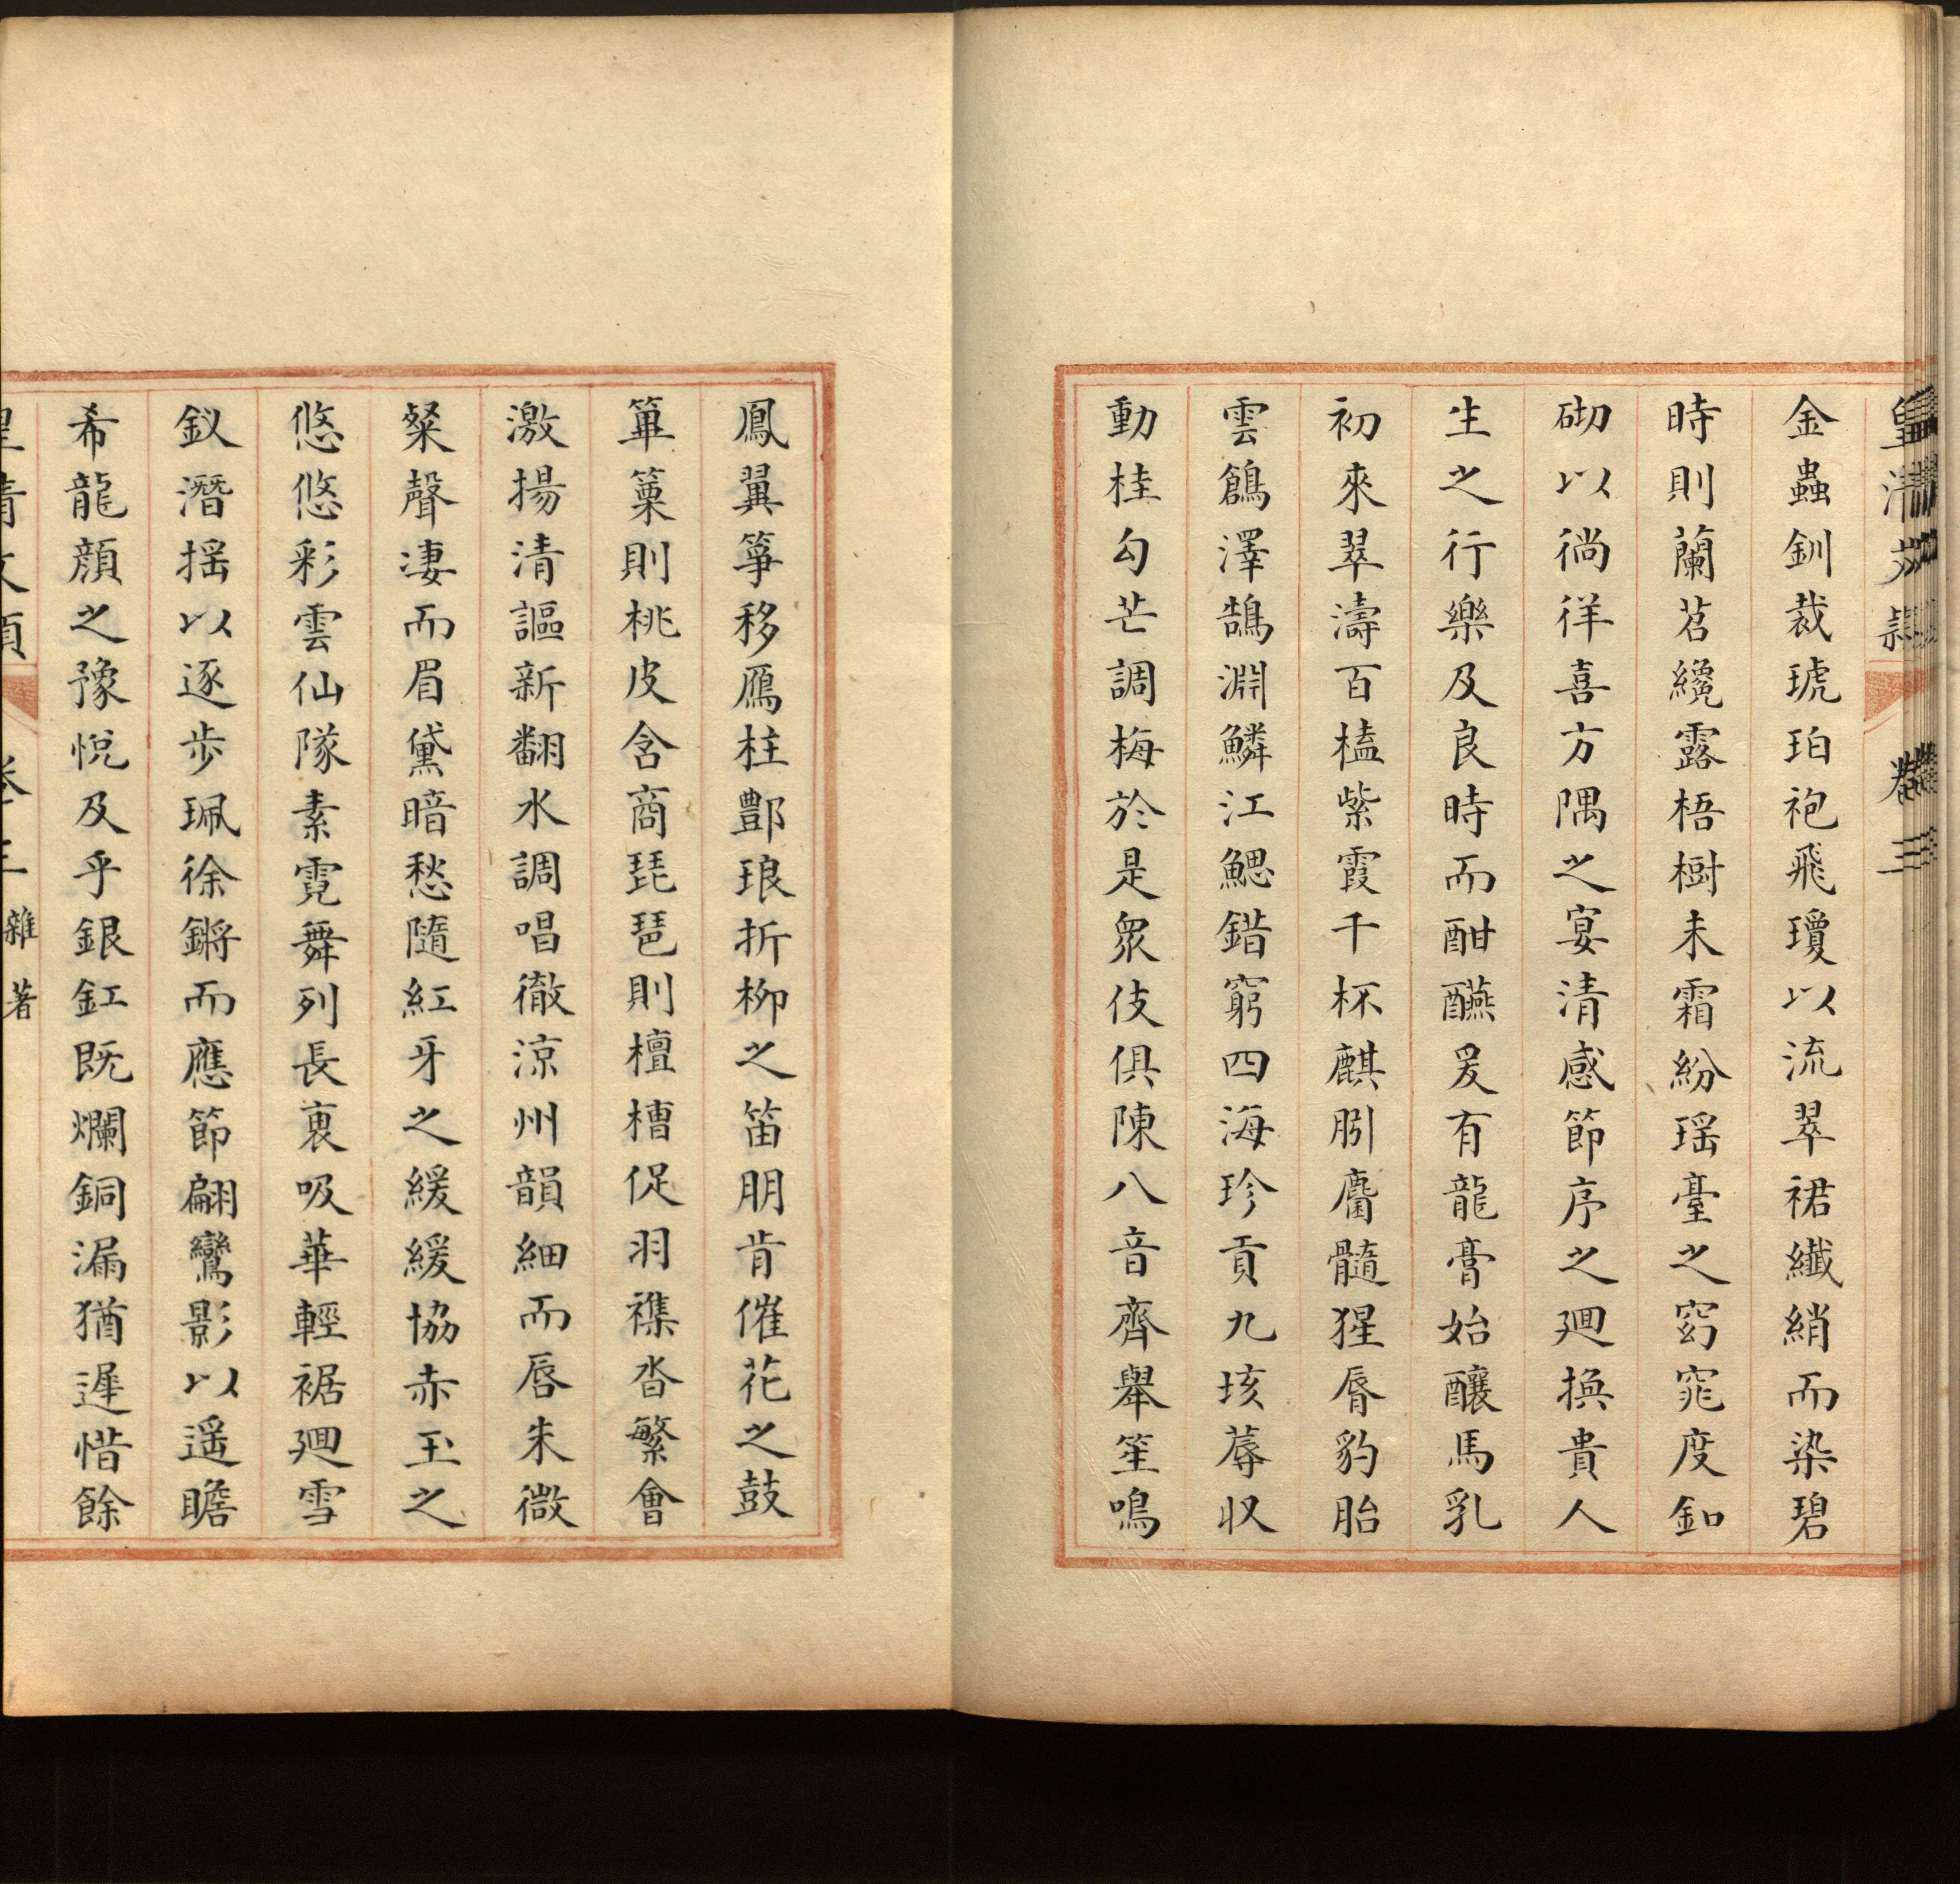 皇清文穎 卷三
金蟲釧裁琥珀袍飛瓊以流翠裙纖綃而染碧
時則蘭苕纔露梧樹未霜紛瑶臺之窈窕度釦
砌以徜徉喜方隅之宴清感節序之廻換貴人
生之行樂及良時而酣醼爰有龍膏始釀馬乳
初來翠濤百榼紫霞千杯麒䏖麕髓猩脣豹胎
雲鶬澤鵠淵鱗江鰓錯窮四海珍貢九垓蓐收
動桂勾芒調梅於是衆伎俱陳八音齊舉笙鳴
鳳翼箏移鴈柱酆琅折栁之笛朋肯催花之鼓
篳篥則桃皮含商琵琶則檀槽促羽襍沓繁會
激揚清謳新翻水調唱徹涼州韻細而唇朱微
粲聲淒而眉黛暗愁隨紅牙之緩緩協赤玉之
悠悠彩雲仙隊素霓舞列長裏吸華輕裾廻雪
釵潛揺以逐歩珮徐鏘而應節翩鸞影以遥瞻
希龍顔之豫悅及乎銀釭既爛銅漏猶遲惜餘
皇清文穎 卷三 雜著